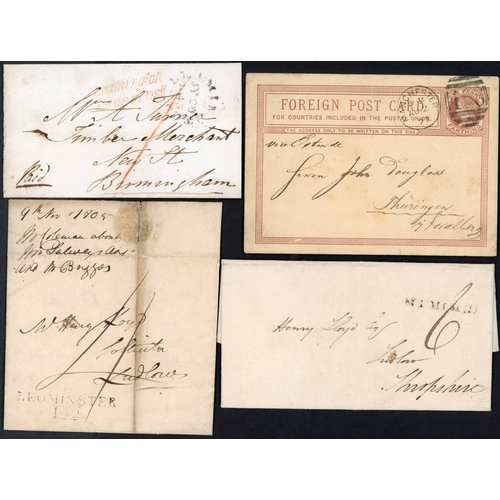 Leamington
Penny Post
Mr H. Turner
Timber Merchant
New St
Birmingham
Paid
FOREIGN POST CARD
FOR COUNTRIES INCLUDED IN THE POSTAL UNION.
THE ADDRESS ONLY TO BE WRITTEN ON THIS SIDE
MANCHESTER
via Ostende
Herrn John Douglas
Thüringen
9th Nov 1805
Mr Coleman about
and Mr Bugges
Mr Henry Lloyd
Solicitor
Ludlow
LEOMINSTER
6
Henry Lloyd Esq
Ludlow
Shropshire